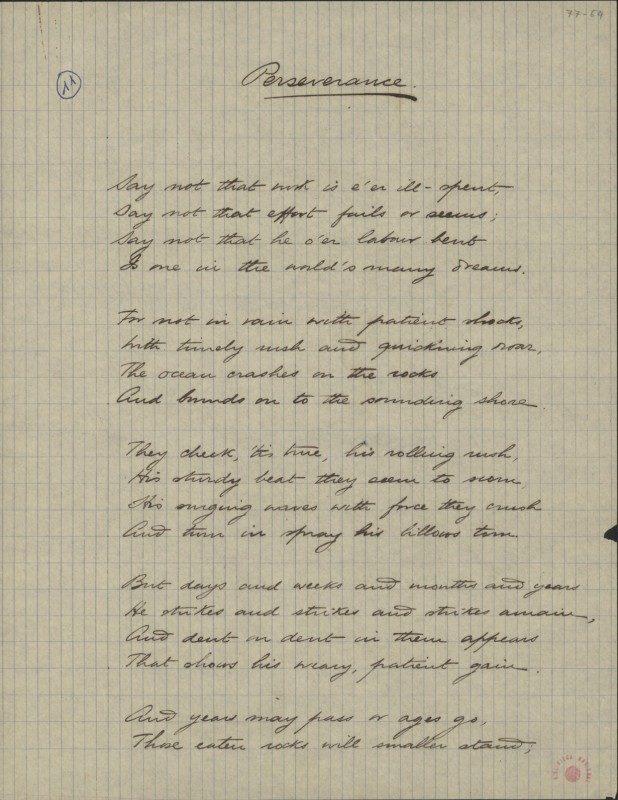 77-69
11
Perseverance.
Say not that work is e'er ill-spent,
Say not that effort fails or seems;
Say not that he o'er labour bent
Is one in the world's many dreams.
For not in vain with patient shocks,
With timely rush and quickining roar,
The ocean crashes on the rocks
And bounds on to the sounding shore.
They check, 'tis true, his rolling rush,
His sturdy beat they seem to scorn,
His surging waves with force they crush
And turn in spray his billows torn.
But days and weeks and months and years
He strikes and strikes and strikes amain,
And dent on dent in them appears
That shows his weary, patient gain.
And years may pass or ages go,
Those eaten rocks will smaller stand;